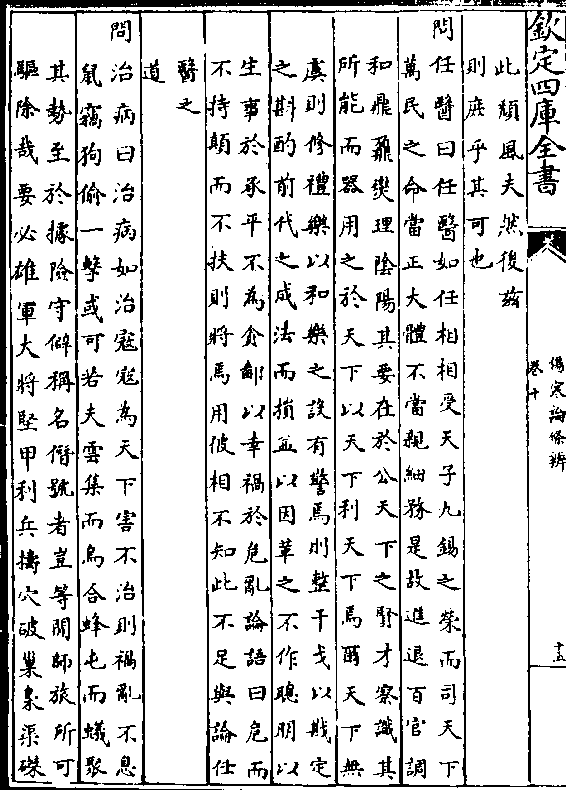 欽定四庫全書
傷寒論條辨
卷十
十五
此頹風夫然後茲
則庶乎其可也
問任醫曰任醫如任相相受天子九錫之榮而司天下
萬民之命當正大體不當親細務是故進退百官調
和鼎鼐爕理陰陽其要在於公天下之賢才察識其
所能而器用之於天下以天下利天下焉爾天下無
虞則修禮樂以和樂之設有警焉則整干戈以戡定
之斟酌前代之成法而損益以因革之不作聰明以
生事於承平不為貪鄙以幸禍於危亂論語曰危而
不持顛而不扶則將焉用彼相不知此不足與論任
醫之
道
問治病曰治病如治寇寇為天下害不治則禍亂不息
鼠竊狗偷一擊或可若夫雲集而烏合蜂屯而蟻聚
其勢至於據險守僻稱名僭號者豈等閒師旅所可
驅除哉要必雄軍大將堅甲利兵擣穴破巢梟渠磔